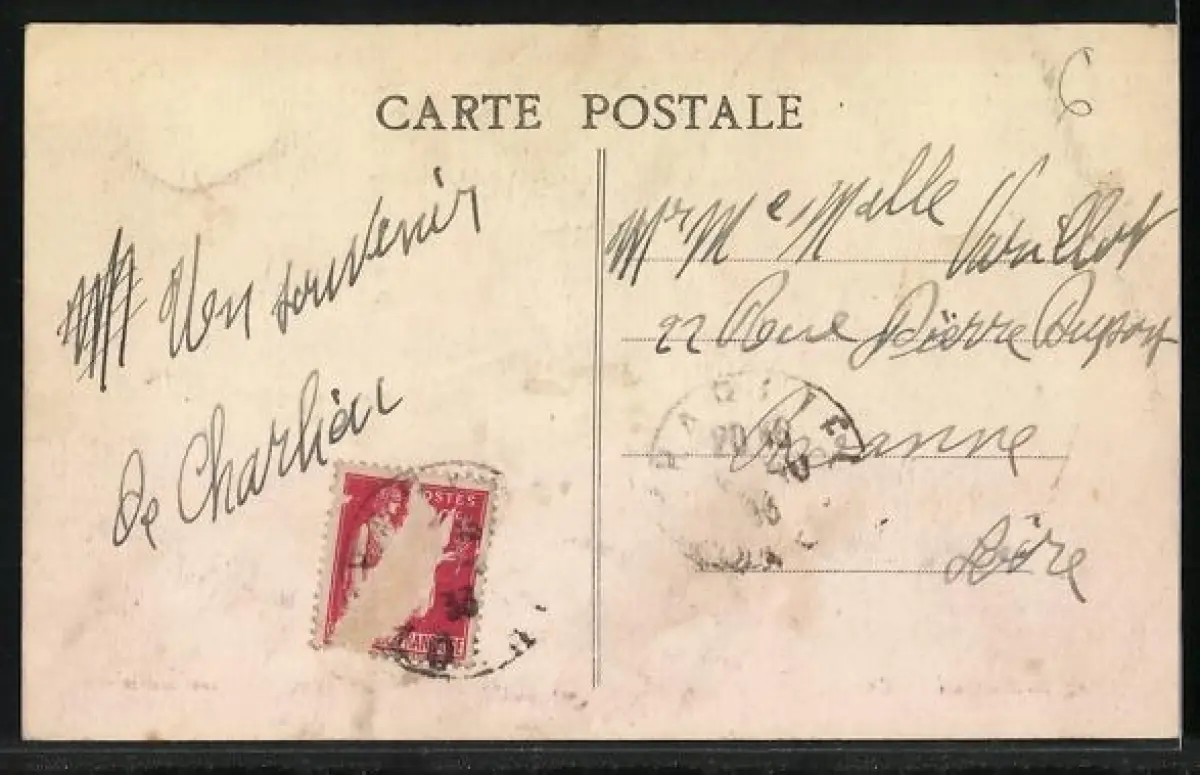 CARTE POSTALE
6
Un souvenir
de Charlieu
Mr Me Melle
22 Rue Pierre
Roanne
Loire
POSTES